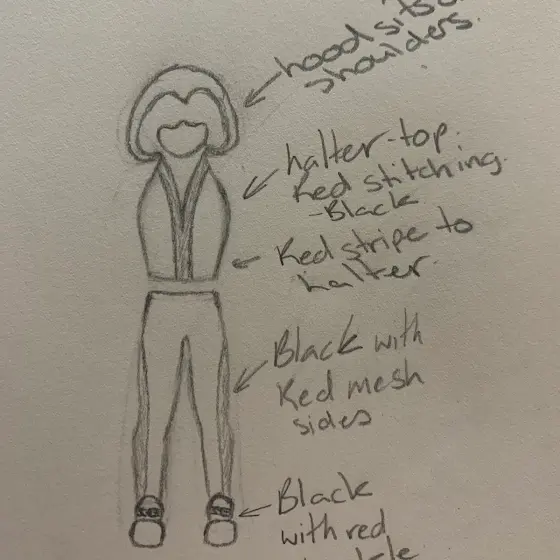 hood sits
shoulders.
halter-top.
Red stitching.
-Black
Red stripe to
halter.
Black with
Red mesh
sides
Black
with red